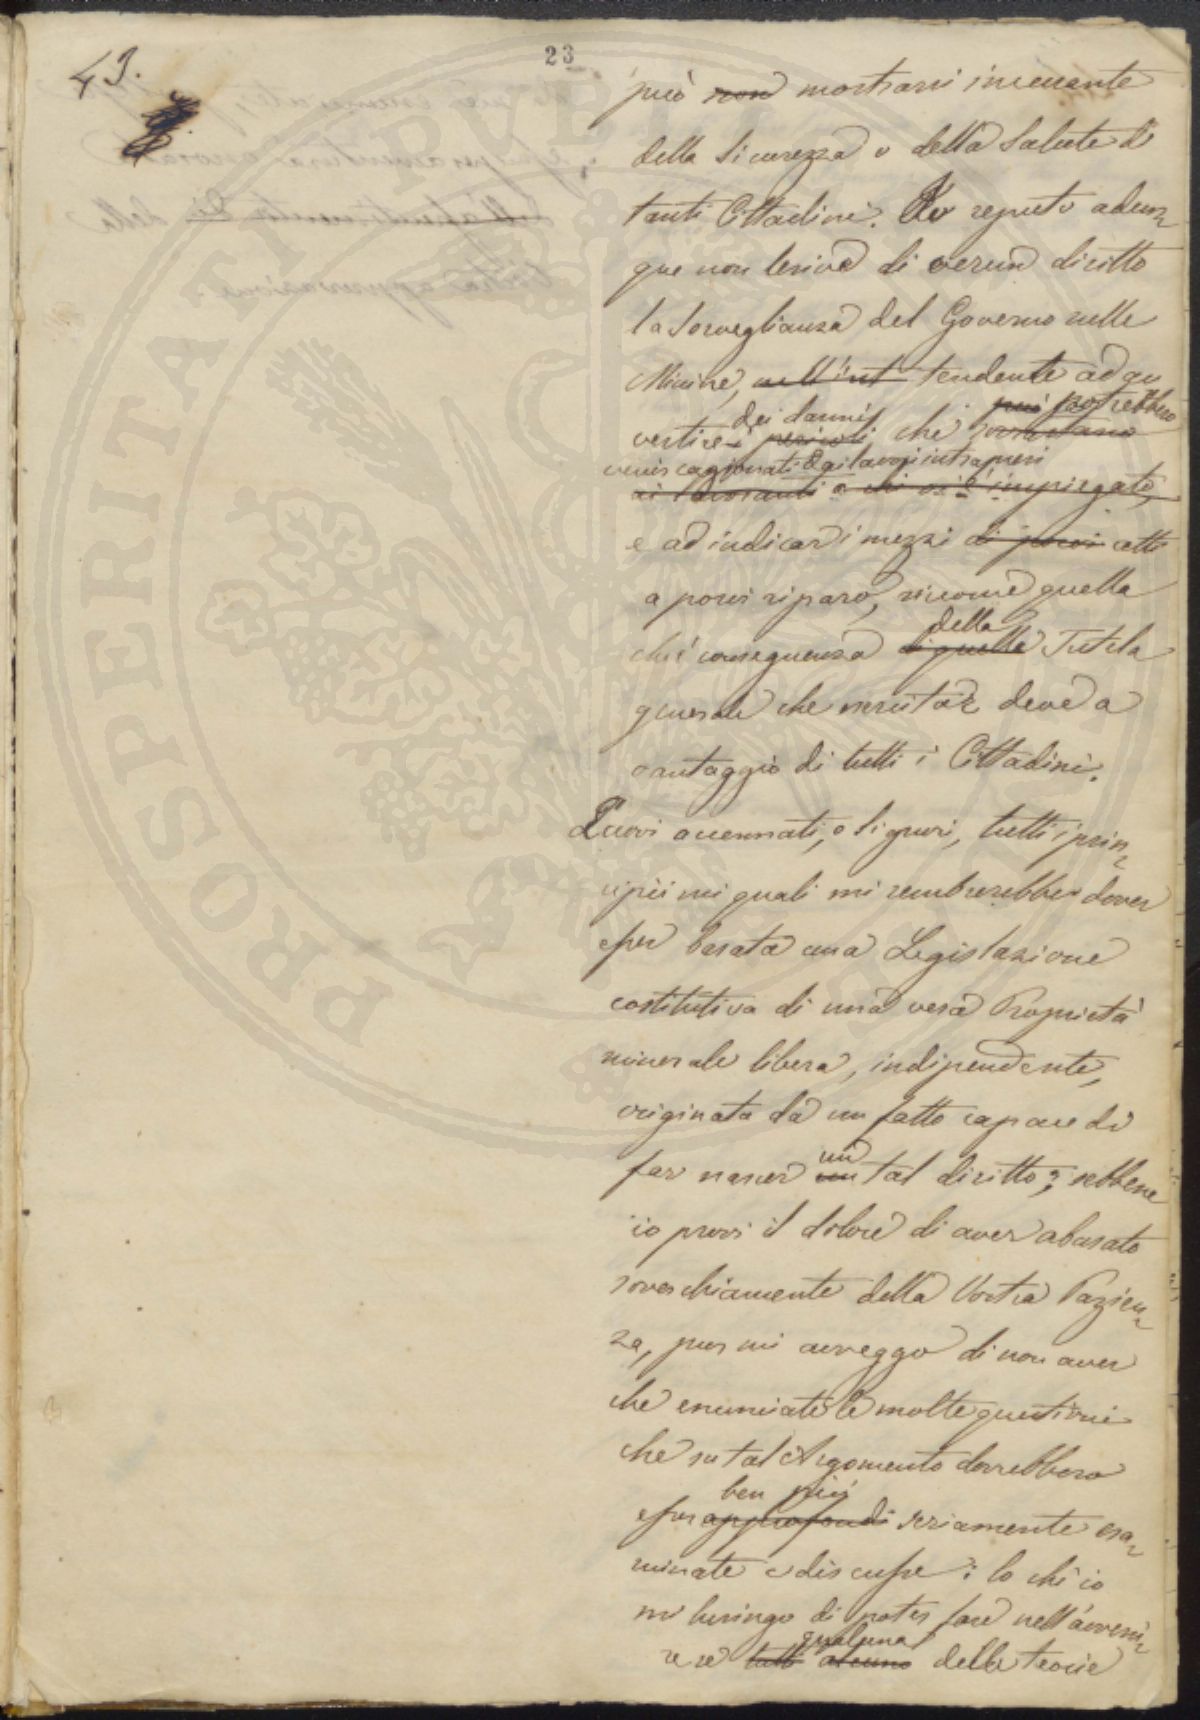 43.
23
può non mostrarsi incurante
della Sicurezza o della Salute di
tanti Cittadini. Io reputo adun-
que non lesiva di verun diritto
la Sorveglianza del Governo nelle
Minine, nell'int tendente ad av
può potrebbero
dei danni
vertire i pericoli, che sovrastano
venir cagionati dai lavori intrapresi
ai lavoranti o chi vi è impiegato,
e ad indicar i mezzi di porvi atti
a porvi riparo, siccome quella
della
ch'è conseguenza di quella Tutela
generale che esercitar deve a
vantaggio di tutti i Cittadini.
Eccovi accennati, o Signori, tutti i prin-
cipii sui quali mi sembrerebbe dover
esser basata una Legislazione
costitutiva di una vera Proprietà
minerale libera, indipendente,
originata da un fatto capace di
un
far nascer un tal diritto; sebbene
io provi il dolore di aver abusato
soverchiamente della Vostra Pazien-
za, pur mi avveggo di non aver
che enunciate le molte questioni
che su tal Argomento dovrebbero
ben più
esser approfondi seriamente esa-
minate e discusse: lo chè io
mi lusingo di poter fare nell'avveni-
qualcuna
re se tutti alcuno delle teorie
PROSPERITATI PVBLI